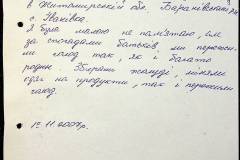 в Житомирській обл. Баранівський р-н
с. Іванівка.
Я була малою не памʼятаю, але
за спогадами батьків ми перенесли
голод так, як і багато
родин. Збирали жолуді, міняли
одяг на продукти, так і пережили
голод.
12.11.2007р.